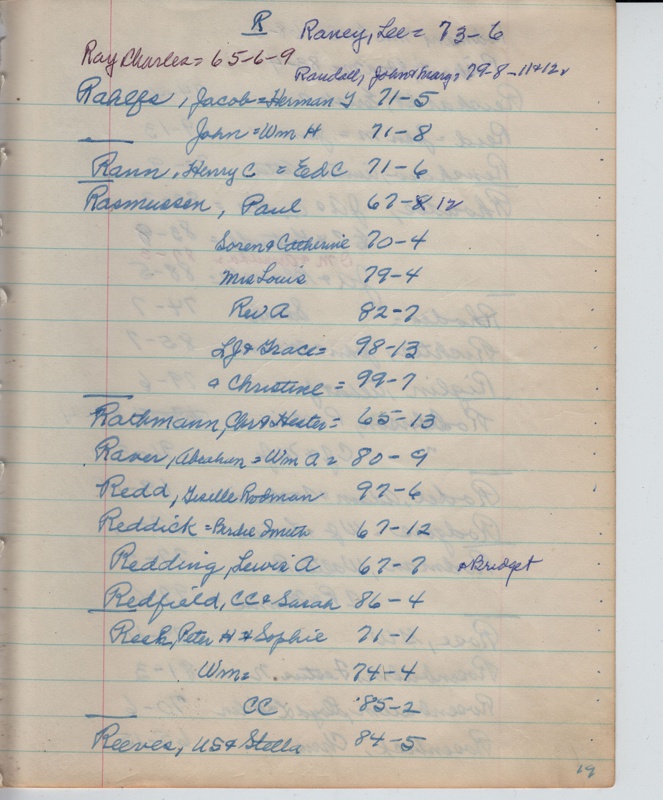 R Raney, Lee = 73-6
Ray Charles = 65-6-9
Randall, John & Mary = 79-8-11&12
Rahlfs, Jacob = Herman J 71-5
John = Wm H 71-8
Rann, Henry C = Ed C 71-6
Rasmussen, Paul 67-8 12
Soren & Catherine 70-4
Mrs Louis 79-4
Rev A 82-7
LJ & Grace = 98-13
& Christine = 99-7
Rathmann, Chr & Hester = 65-13
Raver, Abraham = Wm A = 80-9
Redd, Giselle Rodman 97-6
Reddick = Birdie Smith 67-12
Redding, Lewis A 67-7 & Bridget
Redfield, CC & Sarah 86-4
Reek, Peter H & Sophie 71-1
Wm = 74-4
CC 85-2
Reeves, US & Stella 84-5
19